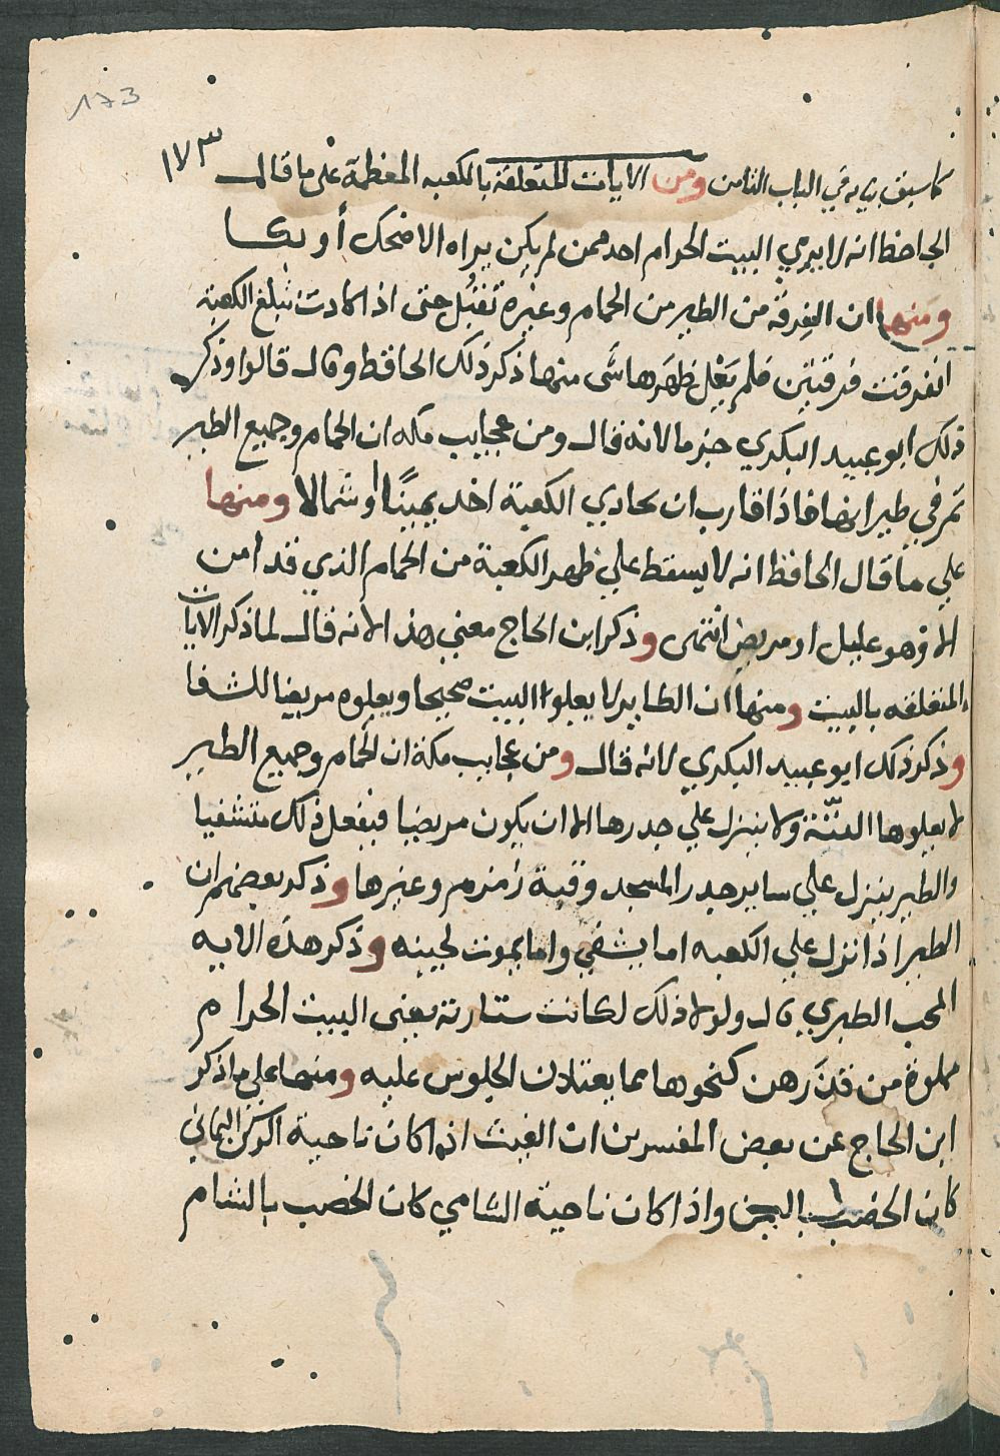 173
١٧٣
كما سبق بيانه في الباب الثامن ومن الايات المتعلقة بالكعبه المعظمة على ما قال
الجاحظ انه لا يري البيت الحرام احد ممن لم يكن يراه الا ضحك أو بكا
ومنها ان الفرقة من الطير من الحمام وغيره تقبل حتى اذا كادت تبلغ الكعبة
انفرقت فرقتين فلم يعل ظهرها شى منها ذكر ذلك الحافظ وقال قالوا وذكر
ذلك ابو عبيد البكري جزما لانه قال ومن عجايب مكه ان الحمام وجميع الطير
تمر في طيرانها فاذا قارب ان يحادي الكعبة اخد يمينًا او شمالا ومنها
علي ما قال الحافظ انه لا يسقط علي ظهر الكعبة من الحمام الذي قد امن
الا وهو عليل او مريض انتهى وذكر ابن الحاج معني هذ الانه قال لما ذكر الايات
المتعلقه بالبيت ومنها ان الطاير لا يعلوا البيت صحيحا ويعلوه مريضا للشفا
وذكر ذلك ابو عبيد البكري لانه قال ومن عجايب مكة ان الحمام وجميع الطير
لا يعلوها البتّة ولا ينزل علي جدرها الا ان يكون مريضا فيفعل ذلك متشفيا
والطير ينزل علي ساير جدر المسجد وقبة زمزم وغيرها وذكر بعضهم ان
الطير اذا نزل علي الكعبه اما يشفي واما يموت لحينه وذكر هذه الايه
المحب الطبري قال ولولا ذلك لكانت ستارته يعني البيت الحرام
مملوة من قذرهن كنحوها مما يعتادن الجلوس عليه ومنها على ما ذكر
ابن الحاج عن بعض المفسرين ان الغيث اذا كان ناحية الركن اليماني
كان الخصب باليمن واذا كان ناحية الشامي كان الخصب بالشام